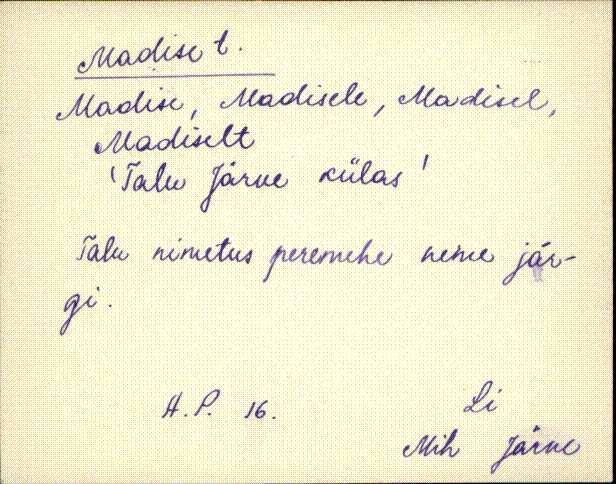 Madise t.
Madise, Madisele, Madisel,
Madiselt
'Talu Järve külas'
Talu nimetus peremehe neime jär-
gi.
H. P. 16.
Li
Mih Järve